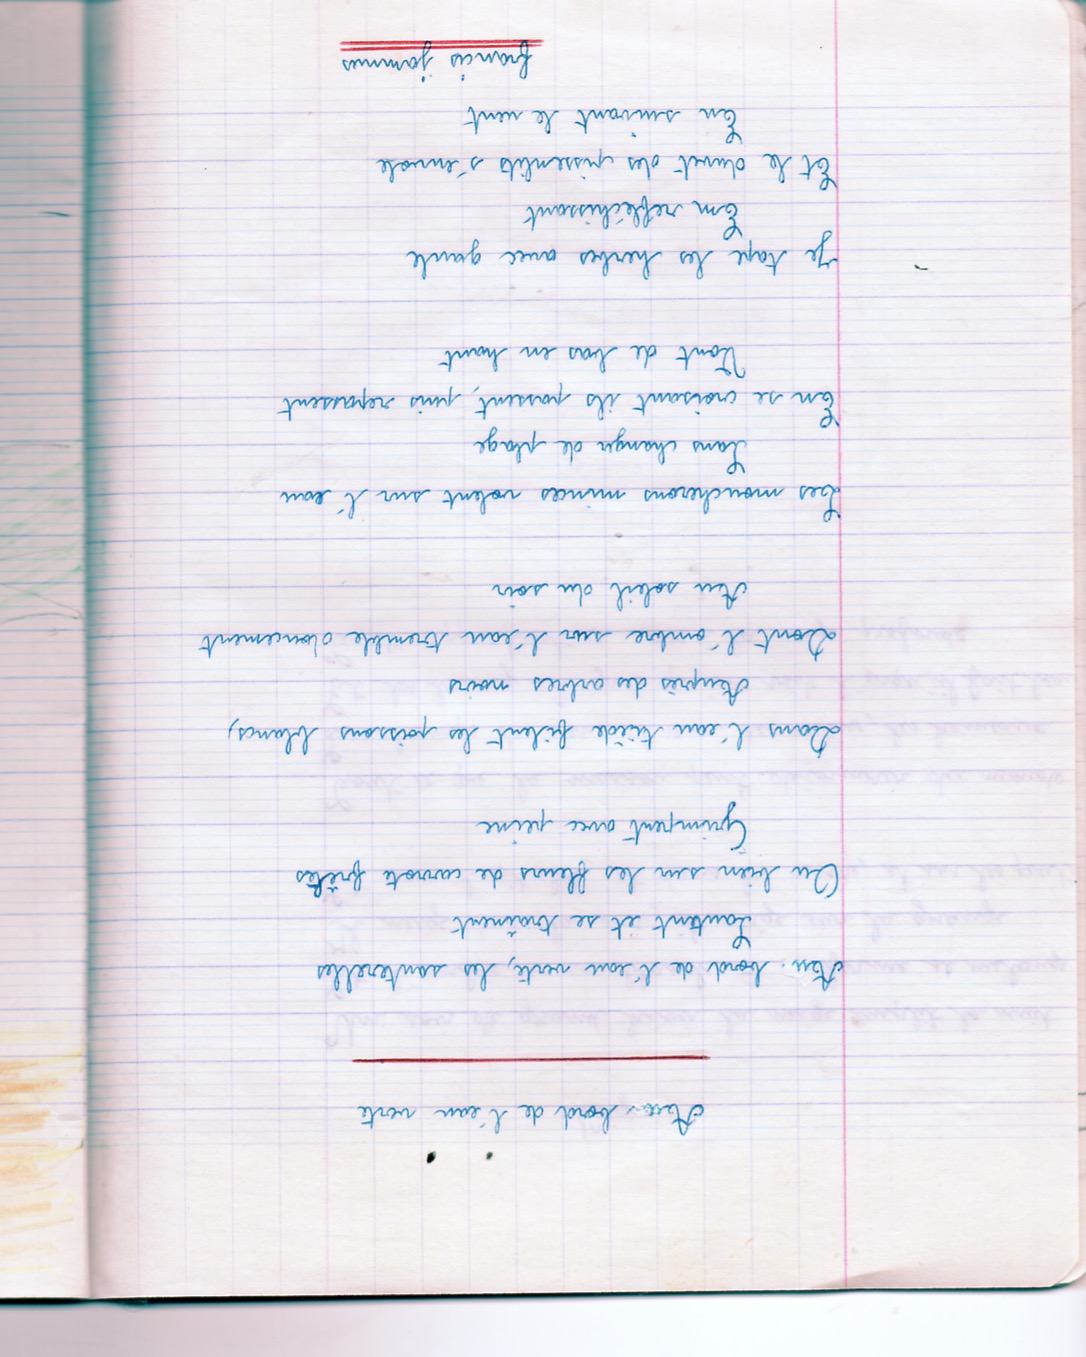 Au bord de l'eau verte
Au bord de l'eau verte, les sauterelles
Sautent et se traînent
Ou bien sur les fleurs de carrote frêles
Grimpent avec peine
Dans l'eau tiède filent les poissons blancs,
Auprès des arbres noirs
Dont l'ombre sur l'eau tremble doucement
Au soleil du soir
Les moucherons minces volent sur l'eau
Sans changer de plage
En se croisant ils passent, puis repassent
Vont de bas en haut
Je tape les herbes avec gaule
En refléchissant
Et le duvet des pissenlits s'envole
En suivant le vent
francis jammes